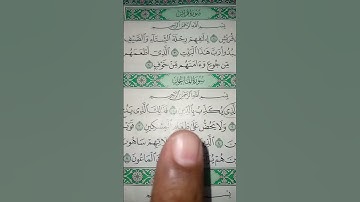 سُورَةُ قُرَيْشٍ
بِسْمِ اللَّهِ الرَّحْمَٰنِ الرَّحِيمِ
قُرَيْشٍ ۝ إِۦلَٰفِهِمْ رِحْلَةَ الشِّتَاءِ وَالصَّيْفِ
رَبَّ هَٰذَا الْبَيْتِ ۝ الَّذِي أَطْعَمَهُم
مِّن جُوعٍ وَءَامَنَهُم مِّنْ خَوْفٍ ۝
سُورَةُ الْمَاعُونِ
بِسْمِ اللَّهِ الرَّحْمَٰنِ الرَّحِيمِ
يُكَذِّبُ بِالدِّينِ ۝ فَذَٰلِكَ الَّذِي
۝ وَلَا يَحُضُّ عَلَىٰ طَعَامِ الْمِسْكِينِ ۝
۝ سَاهُونَ
هُمْ الْمَاعُونَ ۝